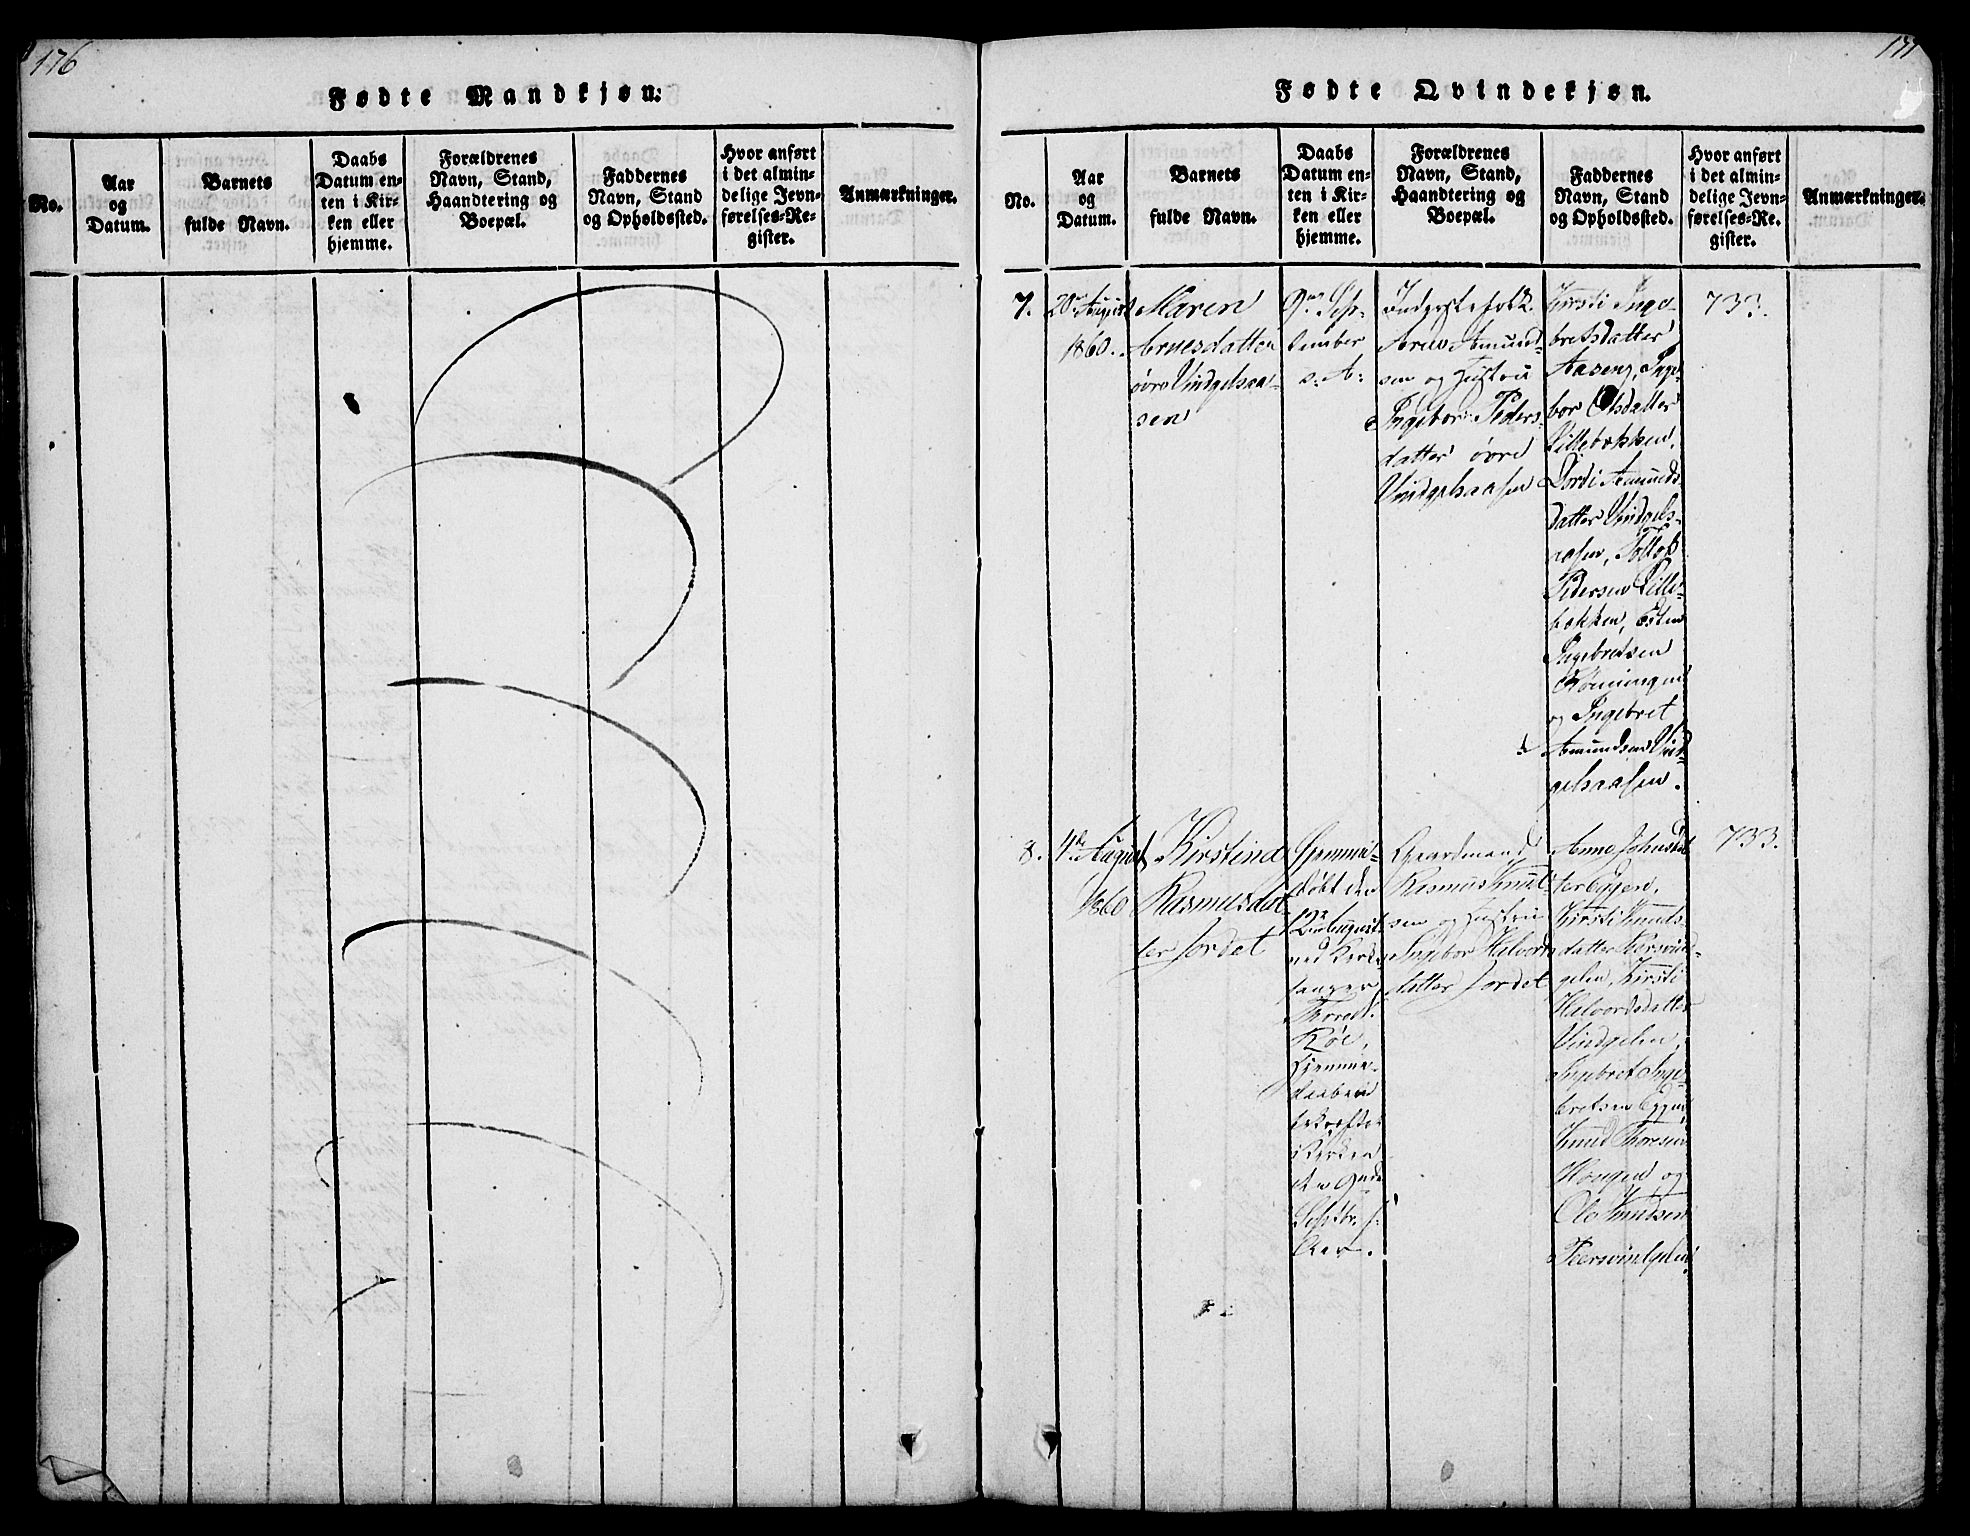 176
Fødte Mandkjøn:
No.
Aar
og
Datum.
Barnets
fulde Navn.
Daabs
Datum en-
ten i Kir-
ken eller
hjemme.
Forældrenes
Navn, Stand,
Haandtering og
Boepæl.
Faddernes
Navn, Stand
og Opholdssted.
Hvor anført
i det almin-
delige Jevn-
førelses-Re-
gister.
Anmærkninger.
177
Fødte Qvindekjøn.
No.
Aar
og
Datum.
Barnets
fulde Navn.
Daabs
Datum en-
ten i Kir-
ken eller
hjemme.
Forældrenes
Navn, Stand,
Haandtering og
Boepæl.
Faddernes
Navn, Stand
og Opholdssted.
Hvor anført
i det almin-
delige Jevn-
førelses-Re-
gister.
Anmærkninger.
7.
20de August
1860.
Maren
Arnesdatter
øvre Vindgelsaa-
sen
9de Sep-
tember
s. A:
Inderstefolk
Arne Amund-
sen og Hustru
Ingebor Peders-
datter øvre
Vindgelsaasen
Kirsti Inge-
bretsdatter
Aaseng, Inge-
bor Olsdatter
Lillebækken,
Dordi Amunds-
datter Vindgels-
aasen, Tollof
Pedersen Lille-
bækken, Esten
Ingebretsen
og Ingebret
Amundsen Vind-
gelsaasen.
733.
8.
4de August
1860
Kirstine
Rasmusdat-
ter Jordet
Hjemme-
døbt den
August
ved Kirke-
sanger
Thored
Røe,
Hjemme-
daaben
bekræftet
i Kirken
den 9nde
Septbr. s:
Aar.
Gaardmand
Rasmus Knut-
sen og Hustru
Ingebor Halvors-
datter Jordet
Anne Johnsdat-
ter Eggen,
Kirsti Knuds-
datter Peersvind-
gelen, Kirsti
Halvorsdatter
Vindgelen,
Ingebret Inge-
bretsen Eggen,
Knud Thoresen
Haugen og
Ole Knudsen
Peersvindgelen.
733.